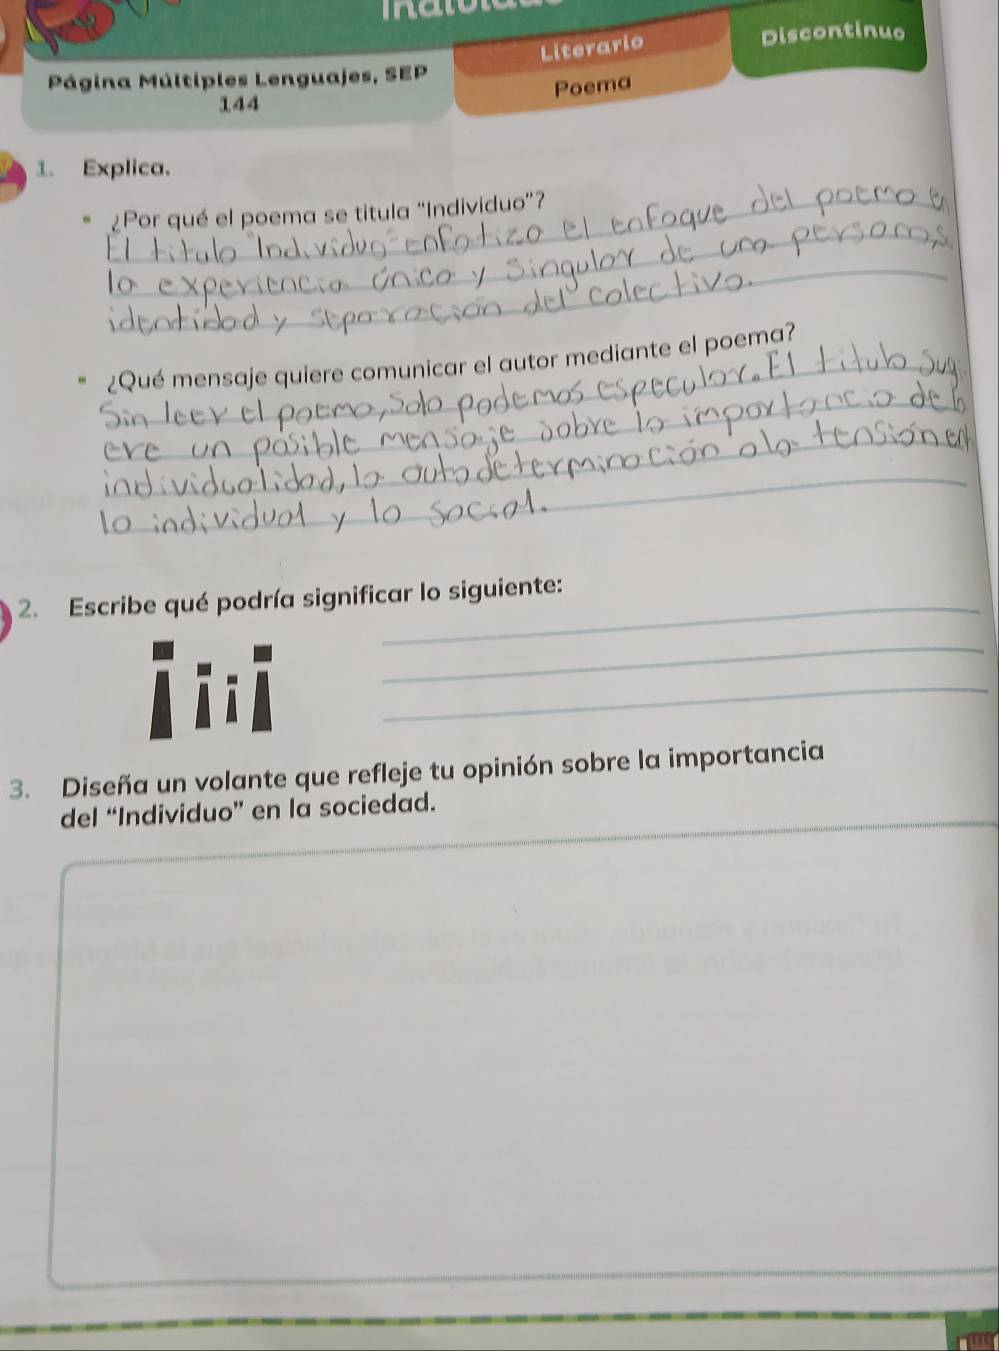 Literario
Discontinuo
Página Múltiples Lenguajes, SEP
144
Poema
1. Explica.
▪ ¿Por qué el poema se titula "Individuo"?
El titulo "Individuo" enfatiza el enfoque del poema en
la experiencia única y singular de una persona, s
identidad y separación del colectivo.
▪ ¿Qué mensaje quiere comunicar el autor mediante el poema?
Sin leer el poema, solo podemos especular. El titulo sug
ere un posible mensaje sobre la importancia de la
individualidad, la autodeterminación o la tensión en
lo individual y lo social.
2. Escribe qué podría significar lo siguiente:
¡ ¡ ¡ ¡
3. Diseña un volante que refleje tu opinión sobre la importancia
del "Individuo" en la sociedad.